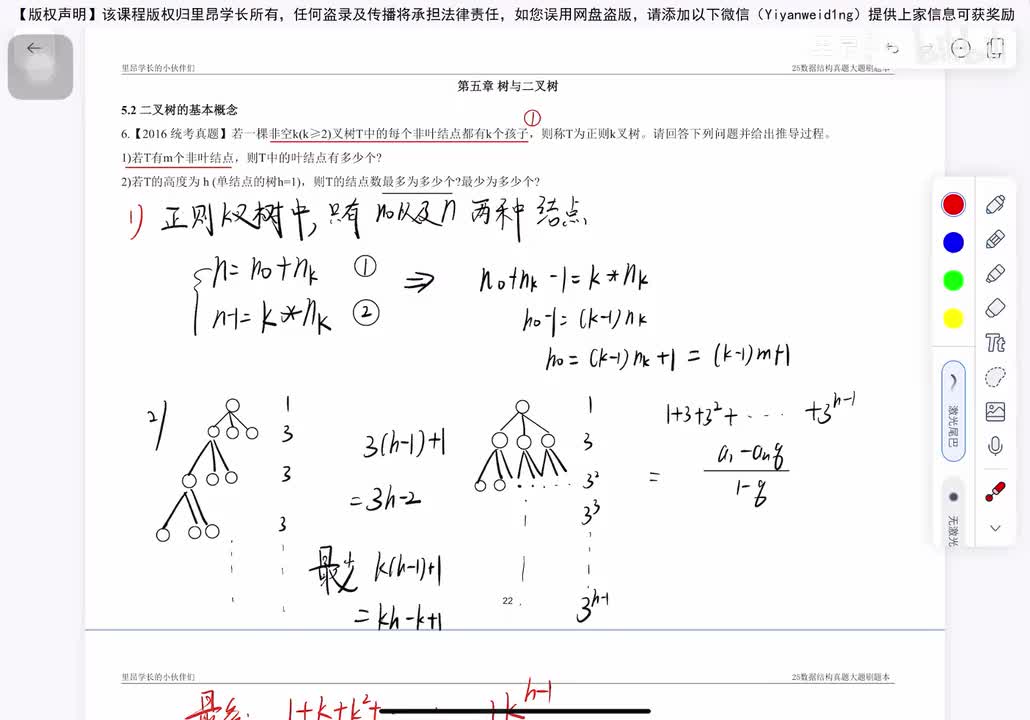 【版权声明】该课程版权归里昂学长所有，任何盗录及传播将承担法律责任，如您误用网盘盗版，请添加以下微信（Yiyanweid1ng）提供上家信息可获奖励
里昂学长的小伙伴们
25数据结构真题大题刷题本
第五章 树与二叉树
5.2 二叉树的基本概念
①
6.【2016 统考真题】若一棵非空k(k≥2)叉树T中的每个非叶结点都有k个孩子，则称T为正则k叉树。请回答下列问题并给出推导过程。
1)若T有m个非叶结点，则T中的叶结点有多少个?
2)若T的高度为 h (单结点的树h=1)，则T的结点数最多为多少个?最少为多少个?
1) 正则k叉树中,只有 n₀以及n 两种结点
n=n₀+nₖ ①
n-1=k*nₖ ②
⇒ n₀+nₖ-1=k*nₖ
n₀-1=(k-1)nₖ
n₀=(k-1)nₖ+1=(k-1)m+1
2)
1
3
3
3
3(h-1)+1
=3h-2
最少 k(h-1)+1
=kh-k+1
1
3
3²
3³
3^{h-1}
1+3+3²+ ··· +3^{h-1}
= \frac{a₁-aₙq}{1-q}
22
里昂学长的小伙伴们
25数据结构真题大题刷题本
最多: 1+k+k²+ ··· +k^{h-1}
Tt
激光尾巴
无激光